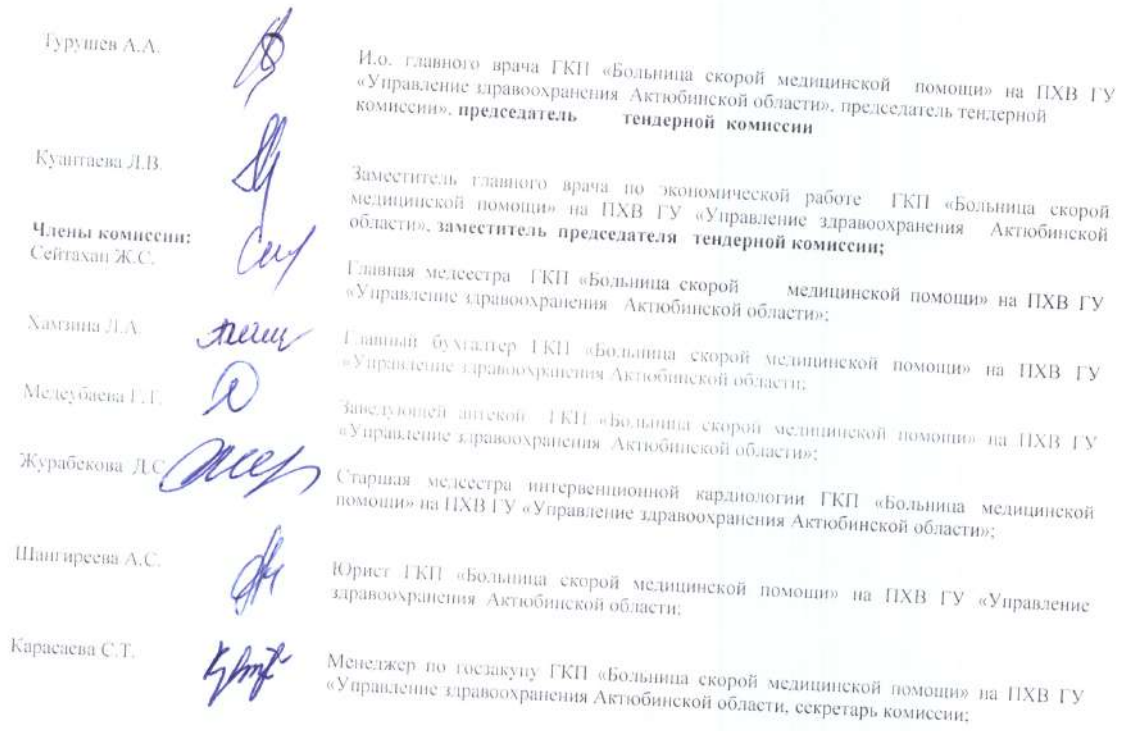 Турушев А.А.
И.о. главного врача ГКП «Больница скорой медицинской помощи» на ПХВ ГУ
«Управление здравоохранения Актюбинской области», председатель тендерной
комиссии», председатель тендерной комиссии
Куантаева Л.В.
Заместитель главного врача по экономической работе ГКП «Больница скорой
медицинской помощи» на ПХВ ГУ «Управление здравоохранения Актюбинской
области», заместитель председателя тендерной комиссии;
Члены комиссии:
Сейтахан Ж.С.
Главная медсестра ГКП «Больница скорой медицинской помощи» на ПХВ ГУ
«Управление здравоохранения Актюбинской области»;
Хамзина Л.А.
Главный бухгалтер ГКП «Больница скорой медицинской помощи» на ПХВ ГУ
«Управление здравоохранения Актюбинской области;
Медеубаева Г.Т.
Заведующей аптекой ГКП «Больница скорой медицинской помощи» на ПХВ ГУ
«Управление здравоохранения Актюбинской области»;
Журабекова Д.С
Старшая медсестра интервенционной кардиологии ГКП «Больница медицинской
помощи» на ПХВ ГУ «Управление здравоохранения Актюбинской области»;
Шангиреева А.С.
Юрист ГКП «Больница скорой медицинской помощи» на ПХВ ГУ «Управление
здравоохранения Актюбинской области;
Карасаева С.Т.
Менеджер по госзакупу ГКП «Больница скорой медицинской помощи» на ПХВ ГУ
«Управление здравоохранения Актюбинской области, секретарь комиссии;